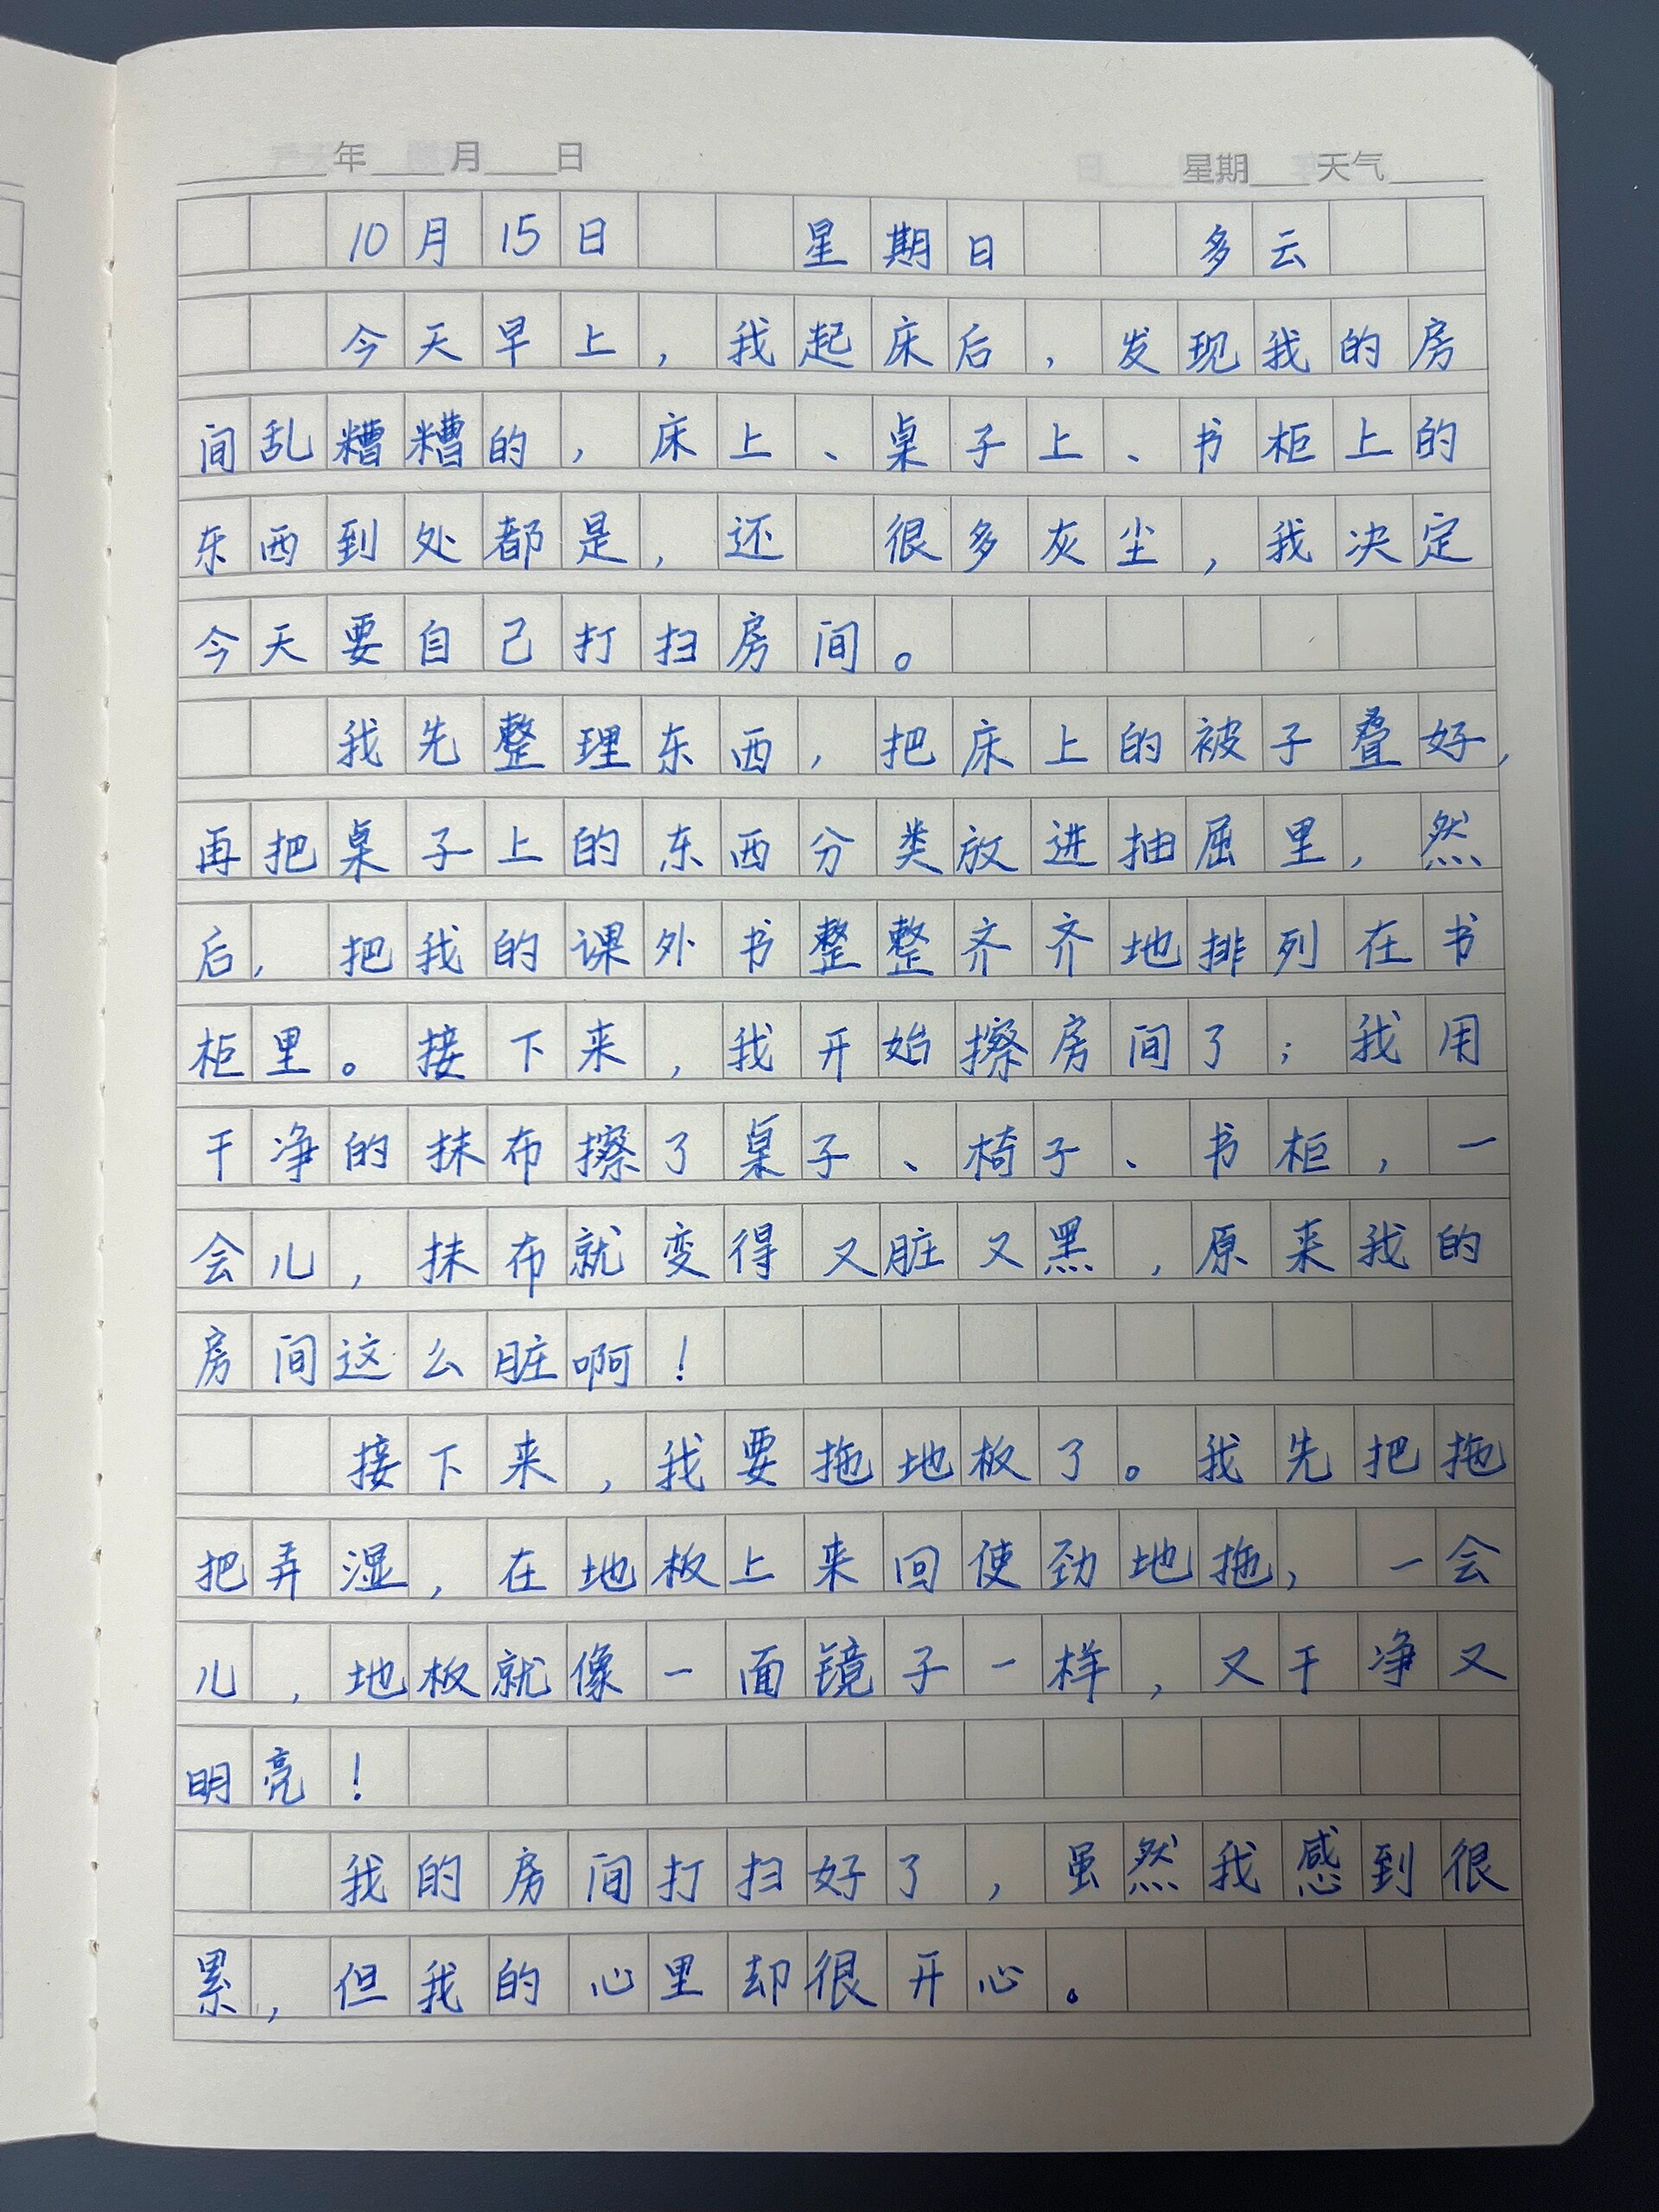 年 月 日 星期 天气
10月15日 星期日 多云
今天早上，我起床后，发现我的房
间乱糟糟的，床上、桌子上、书柜上的
东西到处都是，还 很多灰尘，我决定
今天要自己打扫房间。
我先整理东西，把床上的被子叠好，
再把桌子上的东西分类放进抽屉里，然
后，把我的课外书整整齐齐地排列在书
柜里。接下来，我开始擦房间了；我用
干净的抹布擦了桌子、椅子、书柜，一
会儿，抹布就变得又脏又黑，原来我的
房间这么脏啊！
接下来，我要拖地板了。我先把拖
把弄湿，在地板上来回使劲地拖，一会
儿，地板就像一面镜子一样，又干净又
明亮！
我的房间打扫好了，虽然我感到很
累，但我的心里却很开心。